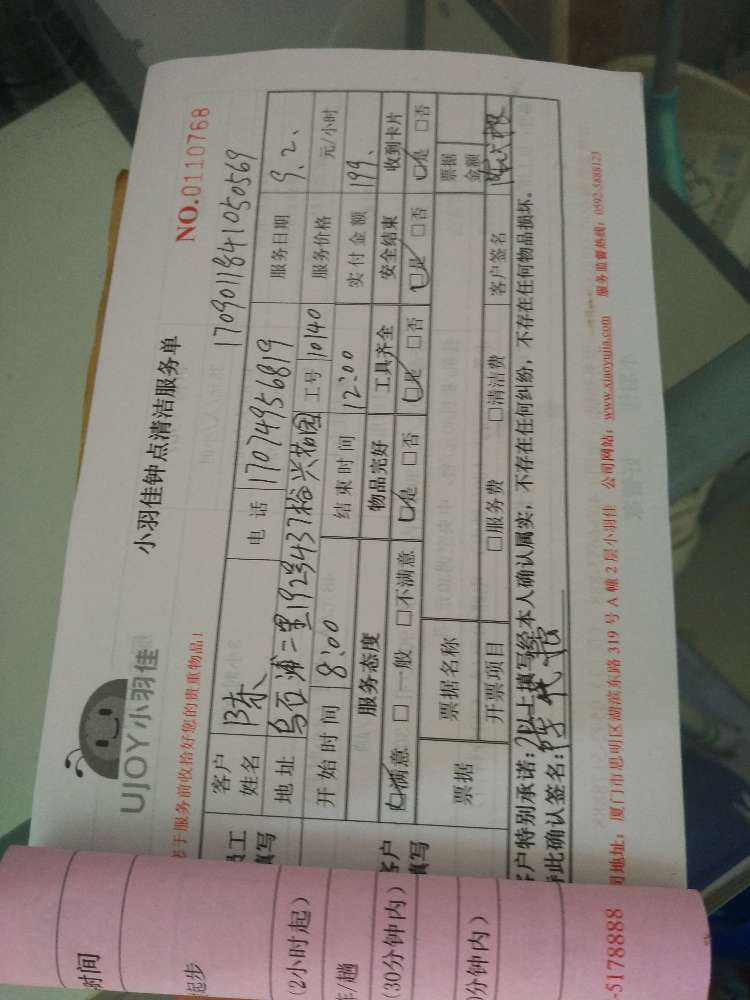 UJOY小羽佳
小羽佳钟点清洁服务单
NO.0110768
于服务前收拾好您的贵重物品!
1709011841050569
客户姓名 陈 电话 17074956819 服务日期 9.2、
地址 乌石浦二里192号437裕兴花园 工号 10140 服务价格 元/小时
开始时间 8:00 结束时间 12:00 实付金额 199、
服务态度 物品完好 工具齐全 安全结束 收到卡片
☑满意 □一般 □不满意 ☑是 □否 ☑是 □否 ☑是 □否 ☑是 □否
票据 票据名称 票据金额
开票项目 □服务费 □清洁费 客户签名
客户特别承诺:以上填写经本人确认属实,不存在任何纠纷,不存在任何物品损坏。
此确认签名:
司地址:厦门市思明区湖滨东路319号A幢2层小羽佳 公司网站:www.xiaoyujia.com 服务监督热线:0592-5888123
员工填写
客户填写
时间
起步
(2小时起)
/趟
(30分钟内)
分钟内)
-5178888